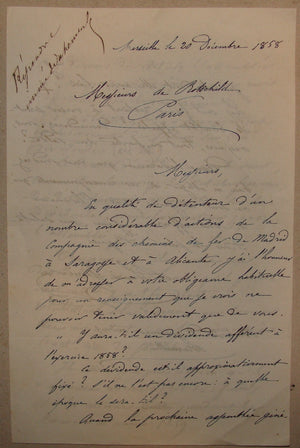 Répondre
Marseille le 20 Décembre 1858
Messieurs de Rothschild
Paris
Messieurs,
En qualité de détenteur d'un
nombre considérable d'actions de la
Compagnie des chemins de fer de Madrid
à Saragosse et à Alicante, j'ai l'honneur
de m'adresser à votre obligeance habituelle
pour un renseignement que je crois ne
pouvoir tenir valablement que de vous.
" Y aura-t-il un dividende afférent à
l'exercice 1858?
Ce dividende est-il approximativement
fixé? S'il ne l'est pas encore: à quelle
époque le sera-t-il?
Quand la prochaine assemblée géné